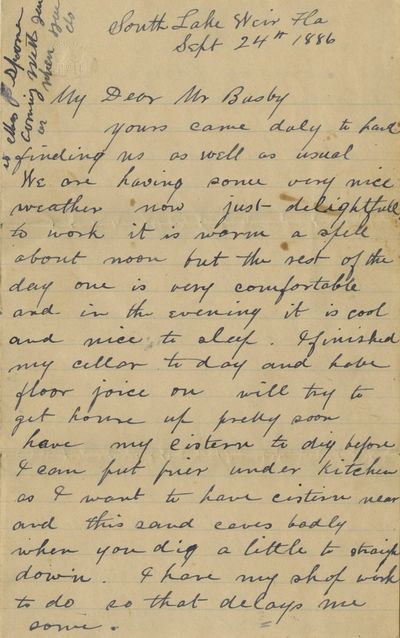 South Lake Weir Fla
Sept 24th 1886
is Mrs Spoone
coming with you
or when you
do
My Dear Mr Basby
yours came duly to hand
finding us as well as usual
We are having some very nice
weather now just delightfull
to work it is warm a spell
about noon but the rest of the
day one is very comfortable
and in the evening it is cool
and nice to sleep. I finished
my cellar to day and have
floor joice on will try to
get house up pretty soon
have my cistern to dig before
I can put pier under kitchen
as I want to have cistern near
and this sand caves badly
when you dig a little to straigh
down. I have my shop work
to do so that delays me
some.